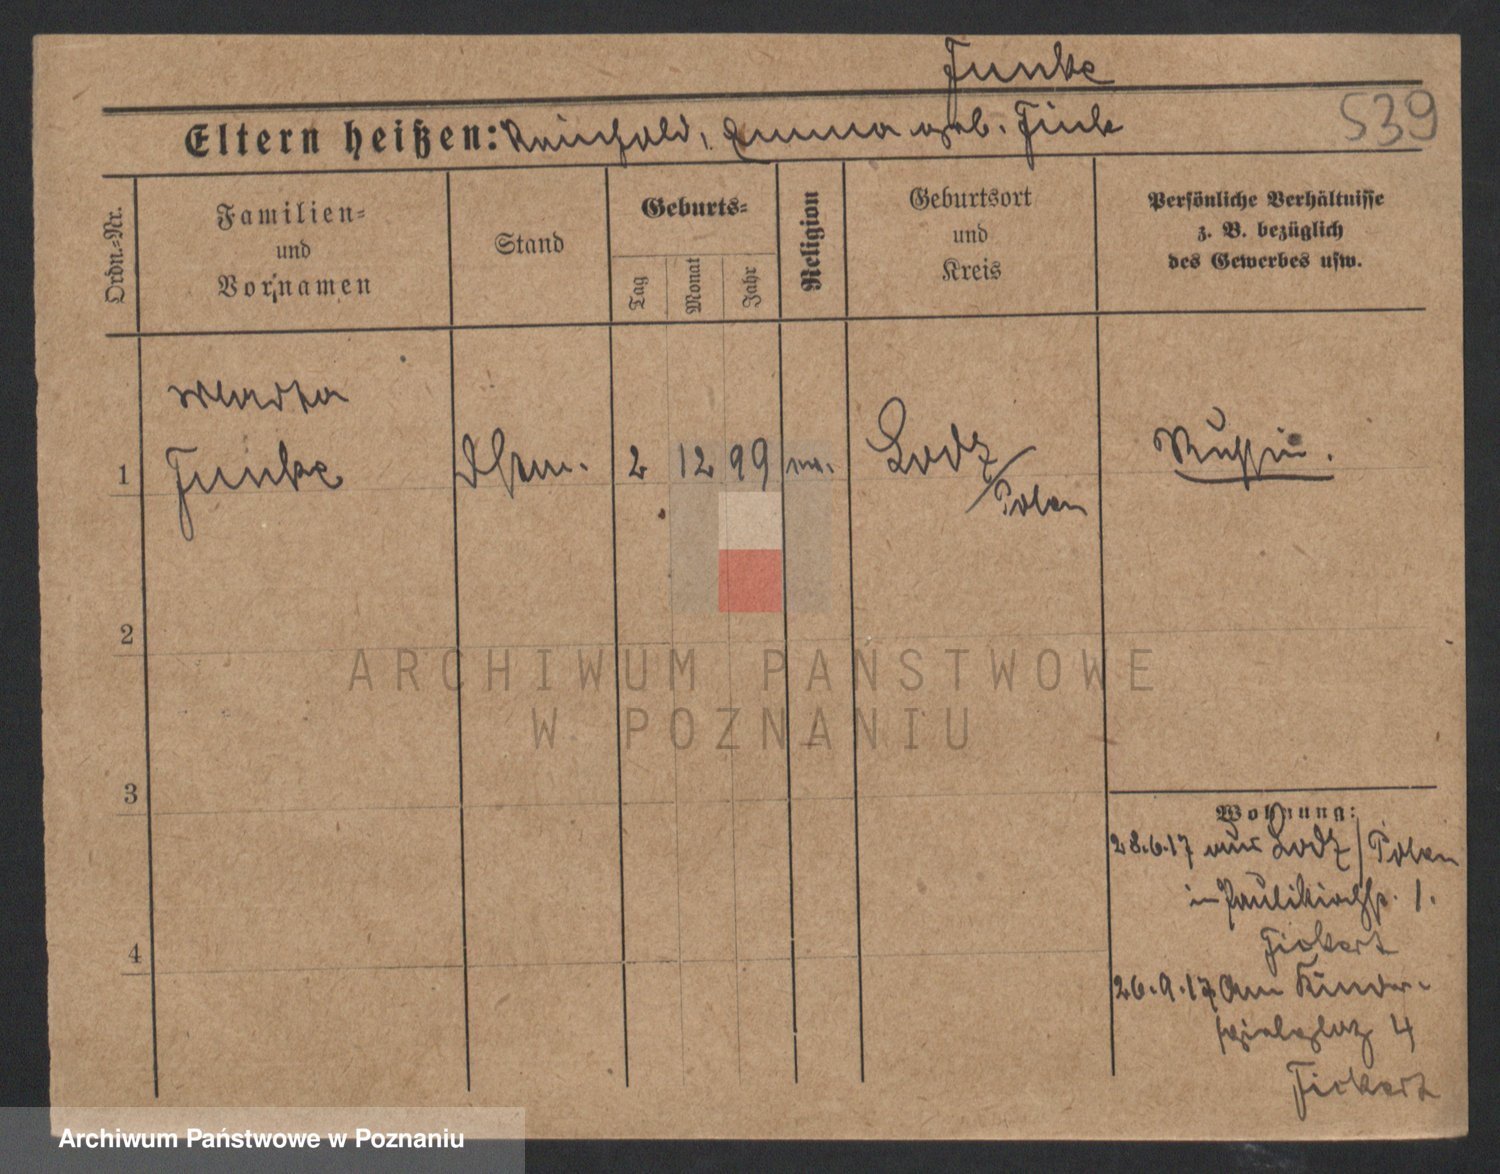 Junke
Eltern heißen: Reinhold, Emma geb. Fink
539
Ordn.=Nr.
Familien=
und
Vornamen
Stand
Geburts=
Tag
Monat
Jahr
Religion
Geburtsort
und
Kreis
Persönliche Verhältnisse
z. B. bezüglich
des Gewerbes usw.
Martha
1 Junke 2 12 99 Lodz/
Polen
Russin.
2
ARCHIWUM PAŃSTWOWE
W POZNANIU
3
4
Wohnung:
28.6.17 aus Lodz/Polen
in Paulikirchstr. 1.
Fickert
26.9.17 Am Kinder-
spielplatz 4
Fickert
Archiwum Państwowe w Poznaniu